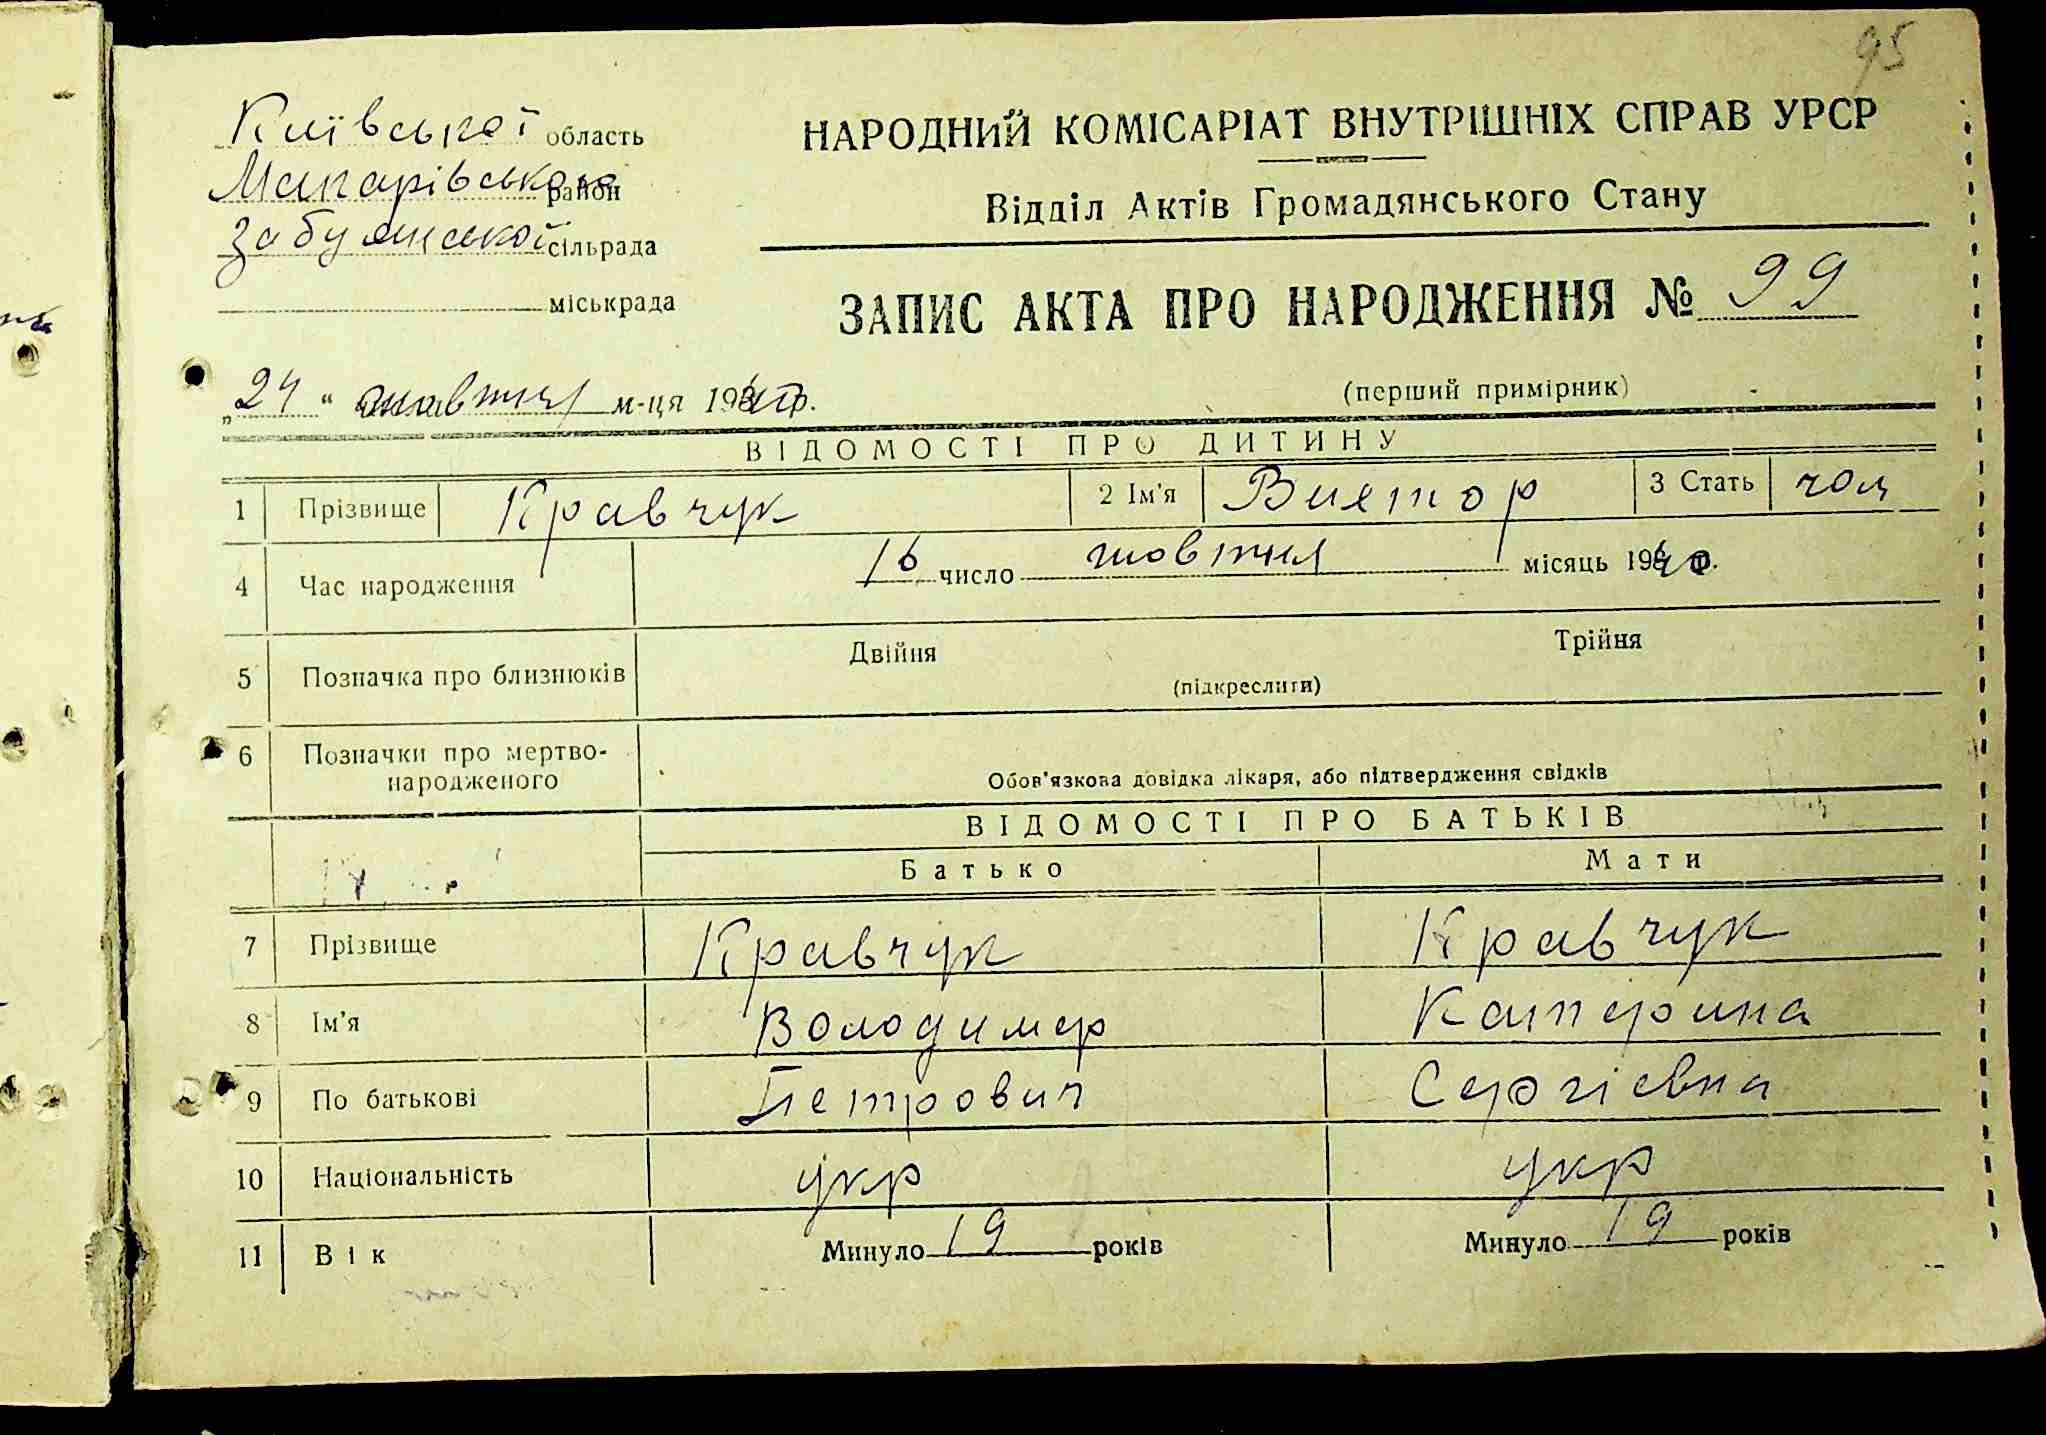 95
Київської область
Макарівського район
Забуянської сільрада
міськрада
НАРОДНИЙ КОМІСАРІАТ ВНУТРІШНІХ СПРАВ УРСР
Відділ Актів Громадянського Стану
ЗАПИС АКТА ПРО НАРОДЖЕННЯ № 99
„24“ жовтня м-ця 1940р.
(перший примірник)
ВІДОМОСТІ ПРО ДИТИНУ
1 Прізвище Кравчук 2 Ім'я Виктор 3 Стать чол
4 Час народження 16 число жовтня місяць 1940р.
5 Позначка про близнюків Двійня Трійня
(підкреслити)
6 Позначки про мертво-
народженого Обов'язкова довідка лікаря, або підтвердження свідків
ВІДОМОСТІ ПРО БАТЬКІВ
Батько Мати
7 Прізвище Кравчук Кравчук
8 Ім'я Володимер Катерина
9 По батькові Петрович Сергіевна
10 Національність укр укр
11 Вік Минуло 19 років Минуло 19 років